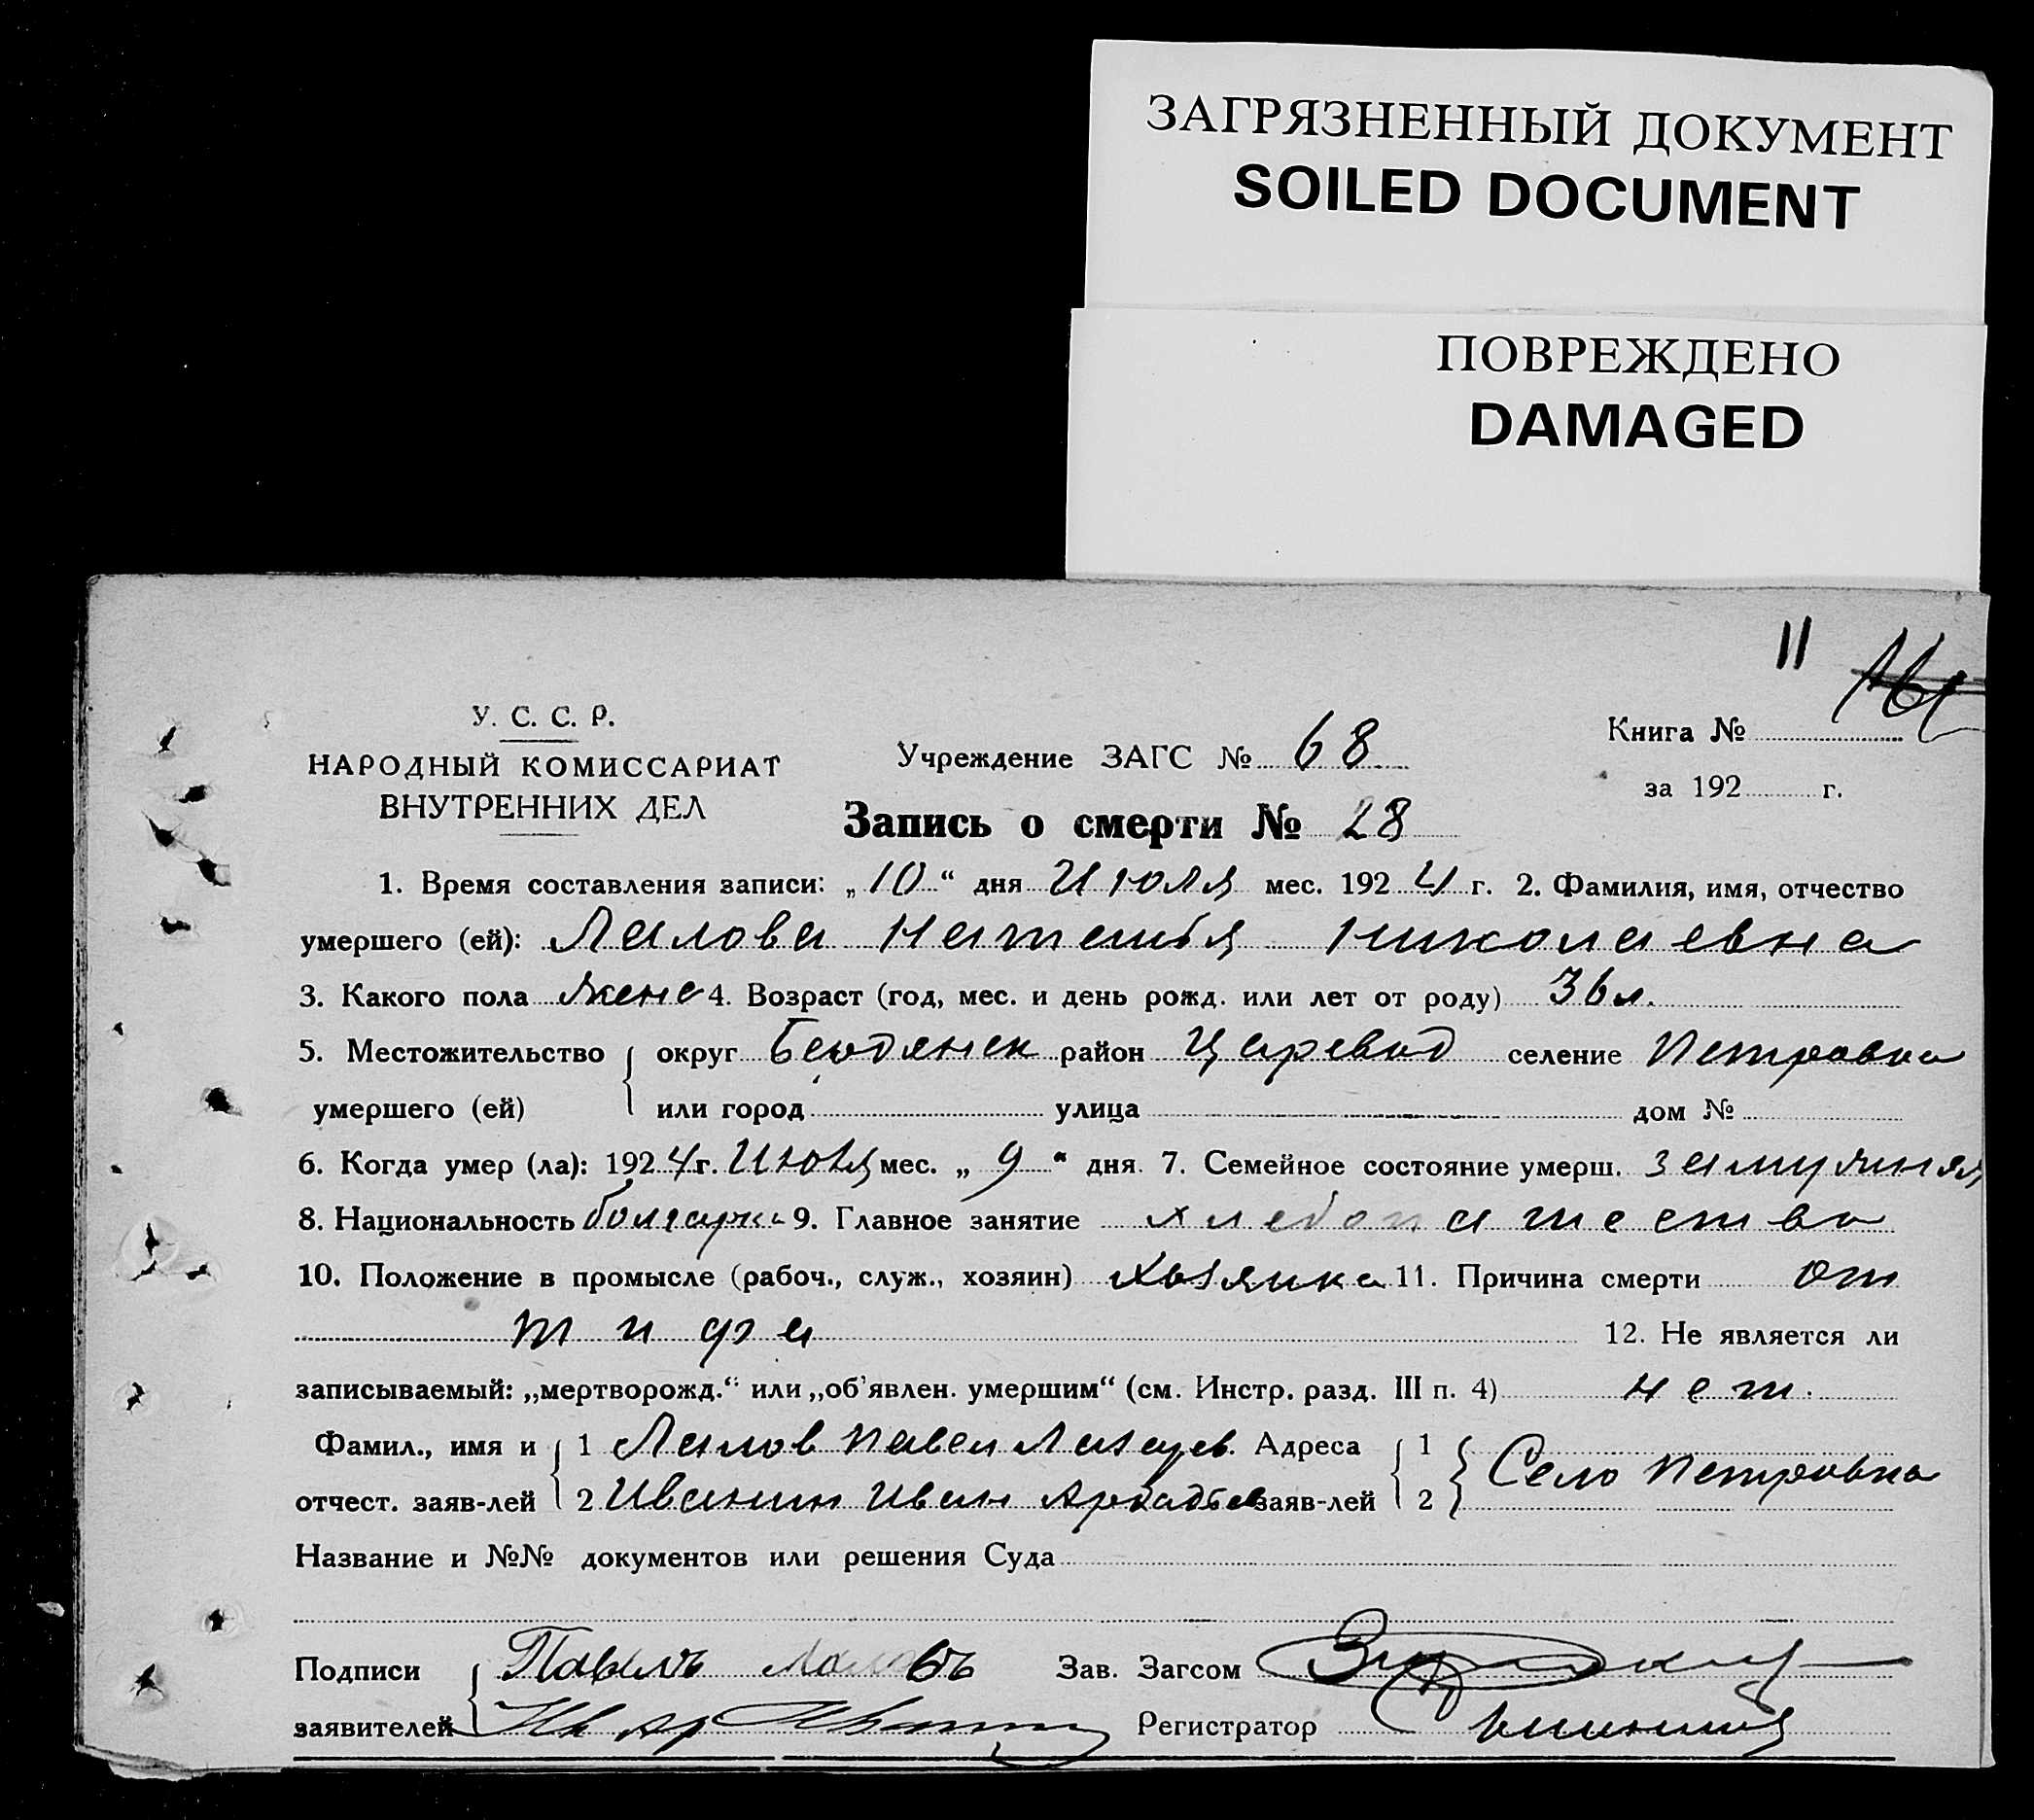 ЗАГРЯЗНЕННЫЙ ДОКУМЕНТ
SOILED DOCUMENT
ПОВРЕЖДЕНО
DAMAGED
11
У. С. С. Р.
НАРОДНЫЙ КОМИССАРИАТ
ВНУТРЕННИХ ДЕЛ
Учреждение ЗАГС № 68
Книга №
за 192 г.
Запись о смерти № 28
1. Время составления записи: „10“ дня Июля мес. 1924 г. 2. Фамилия, имя, отчество
умершего (ей): Лалова Наталья Николаевна
3. Какого пола женс 4. Возраст (год, мес. и день рожд. или лет от роду) 36 л.
5. Местожительство округ Бердянск район Царевод селение Петровка
умершего (ей) или город улица дом №
6. Когда умер (ла): 1924 г. Июля мес. „9“ дня. 7. Семейное состояние умерш. замужняя
8. Национальность болгарка 9. Главное занятие хлебопашество
10. Положение в промысле (рабоч., служ., хозяин) хозяйка 11. Причина смерти от
тифа 12. Не является ли
записываемый: „мертворожд.“ или „об'явлен. умершим“ (см. Инстр. разд. III п. 4) нет.
Фамил., имя и 1 Лалов Павел Лазарев. Адреса 1 Село Петровка
отчест. заяв-лей 2 Иванин Иван Аркадьев заяв-лей 2
Название и №№ документов или решения Суда
Подписи Павелъ Лаловъ Зав. Загсом
заявителей Регистратор